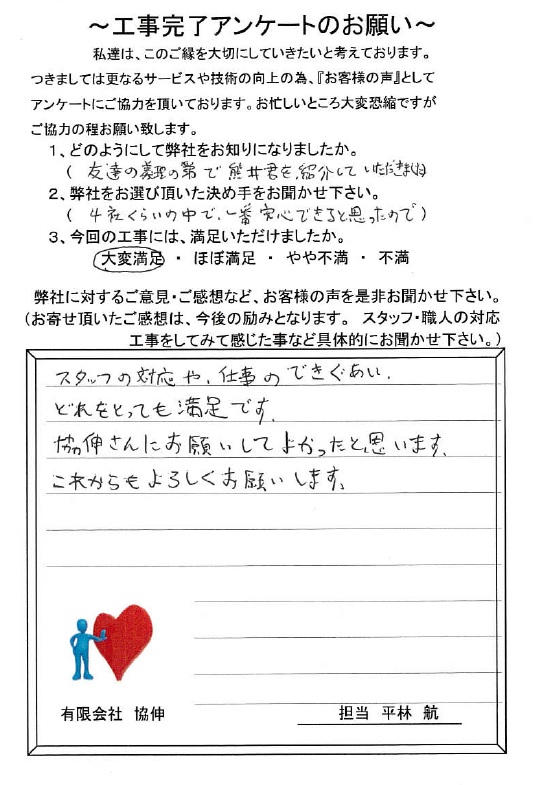 ~工事完了アンケートのお願い~
私達は、このご縁を大切にしていきたいと考えております。
つきましては更なるサービスや技術の向上の為、『お客様の声』として
アンケートにご協力を頂いております。お忙しいところ大変恐縮ですが
ご協力の程お願い致します。
1、どのようにして弊社をお知りになりましたか。
(友達の義理の弟で熊井君を紹介していただきました)
2、弊社をお選び頂いた決め手をお聞かせ下さい。
(4社くらいの中で、一番安心できると思ったので)
3、今回の工事には、満足いただけましたか。
大変満足・ほぼ満足・やや不満・不満
弊社に対するご意見・ご感想など、お客様の声を是非お聞かせ下さい。
(お寄せ頂いたご感想は、今後の励みとなります。 スタッフ・職人の対応
工事をしてみて感じた事など具体的にお聞かせ下さい。)
スタッフの対応や、仕事のできぐあい、
どれをとっても満足です。
協伸さんにお願いしてよかったと思います。
これからもよろしくお願いします。
有限会社 協伸
担当 平林 航